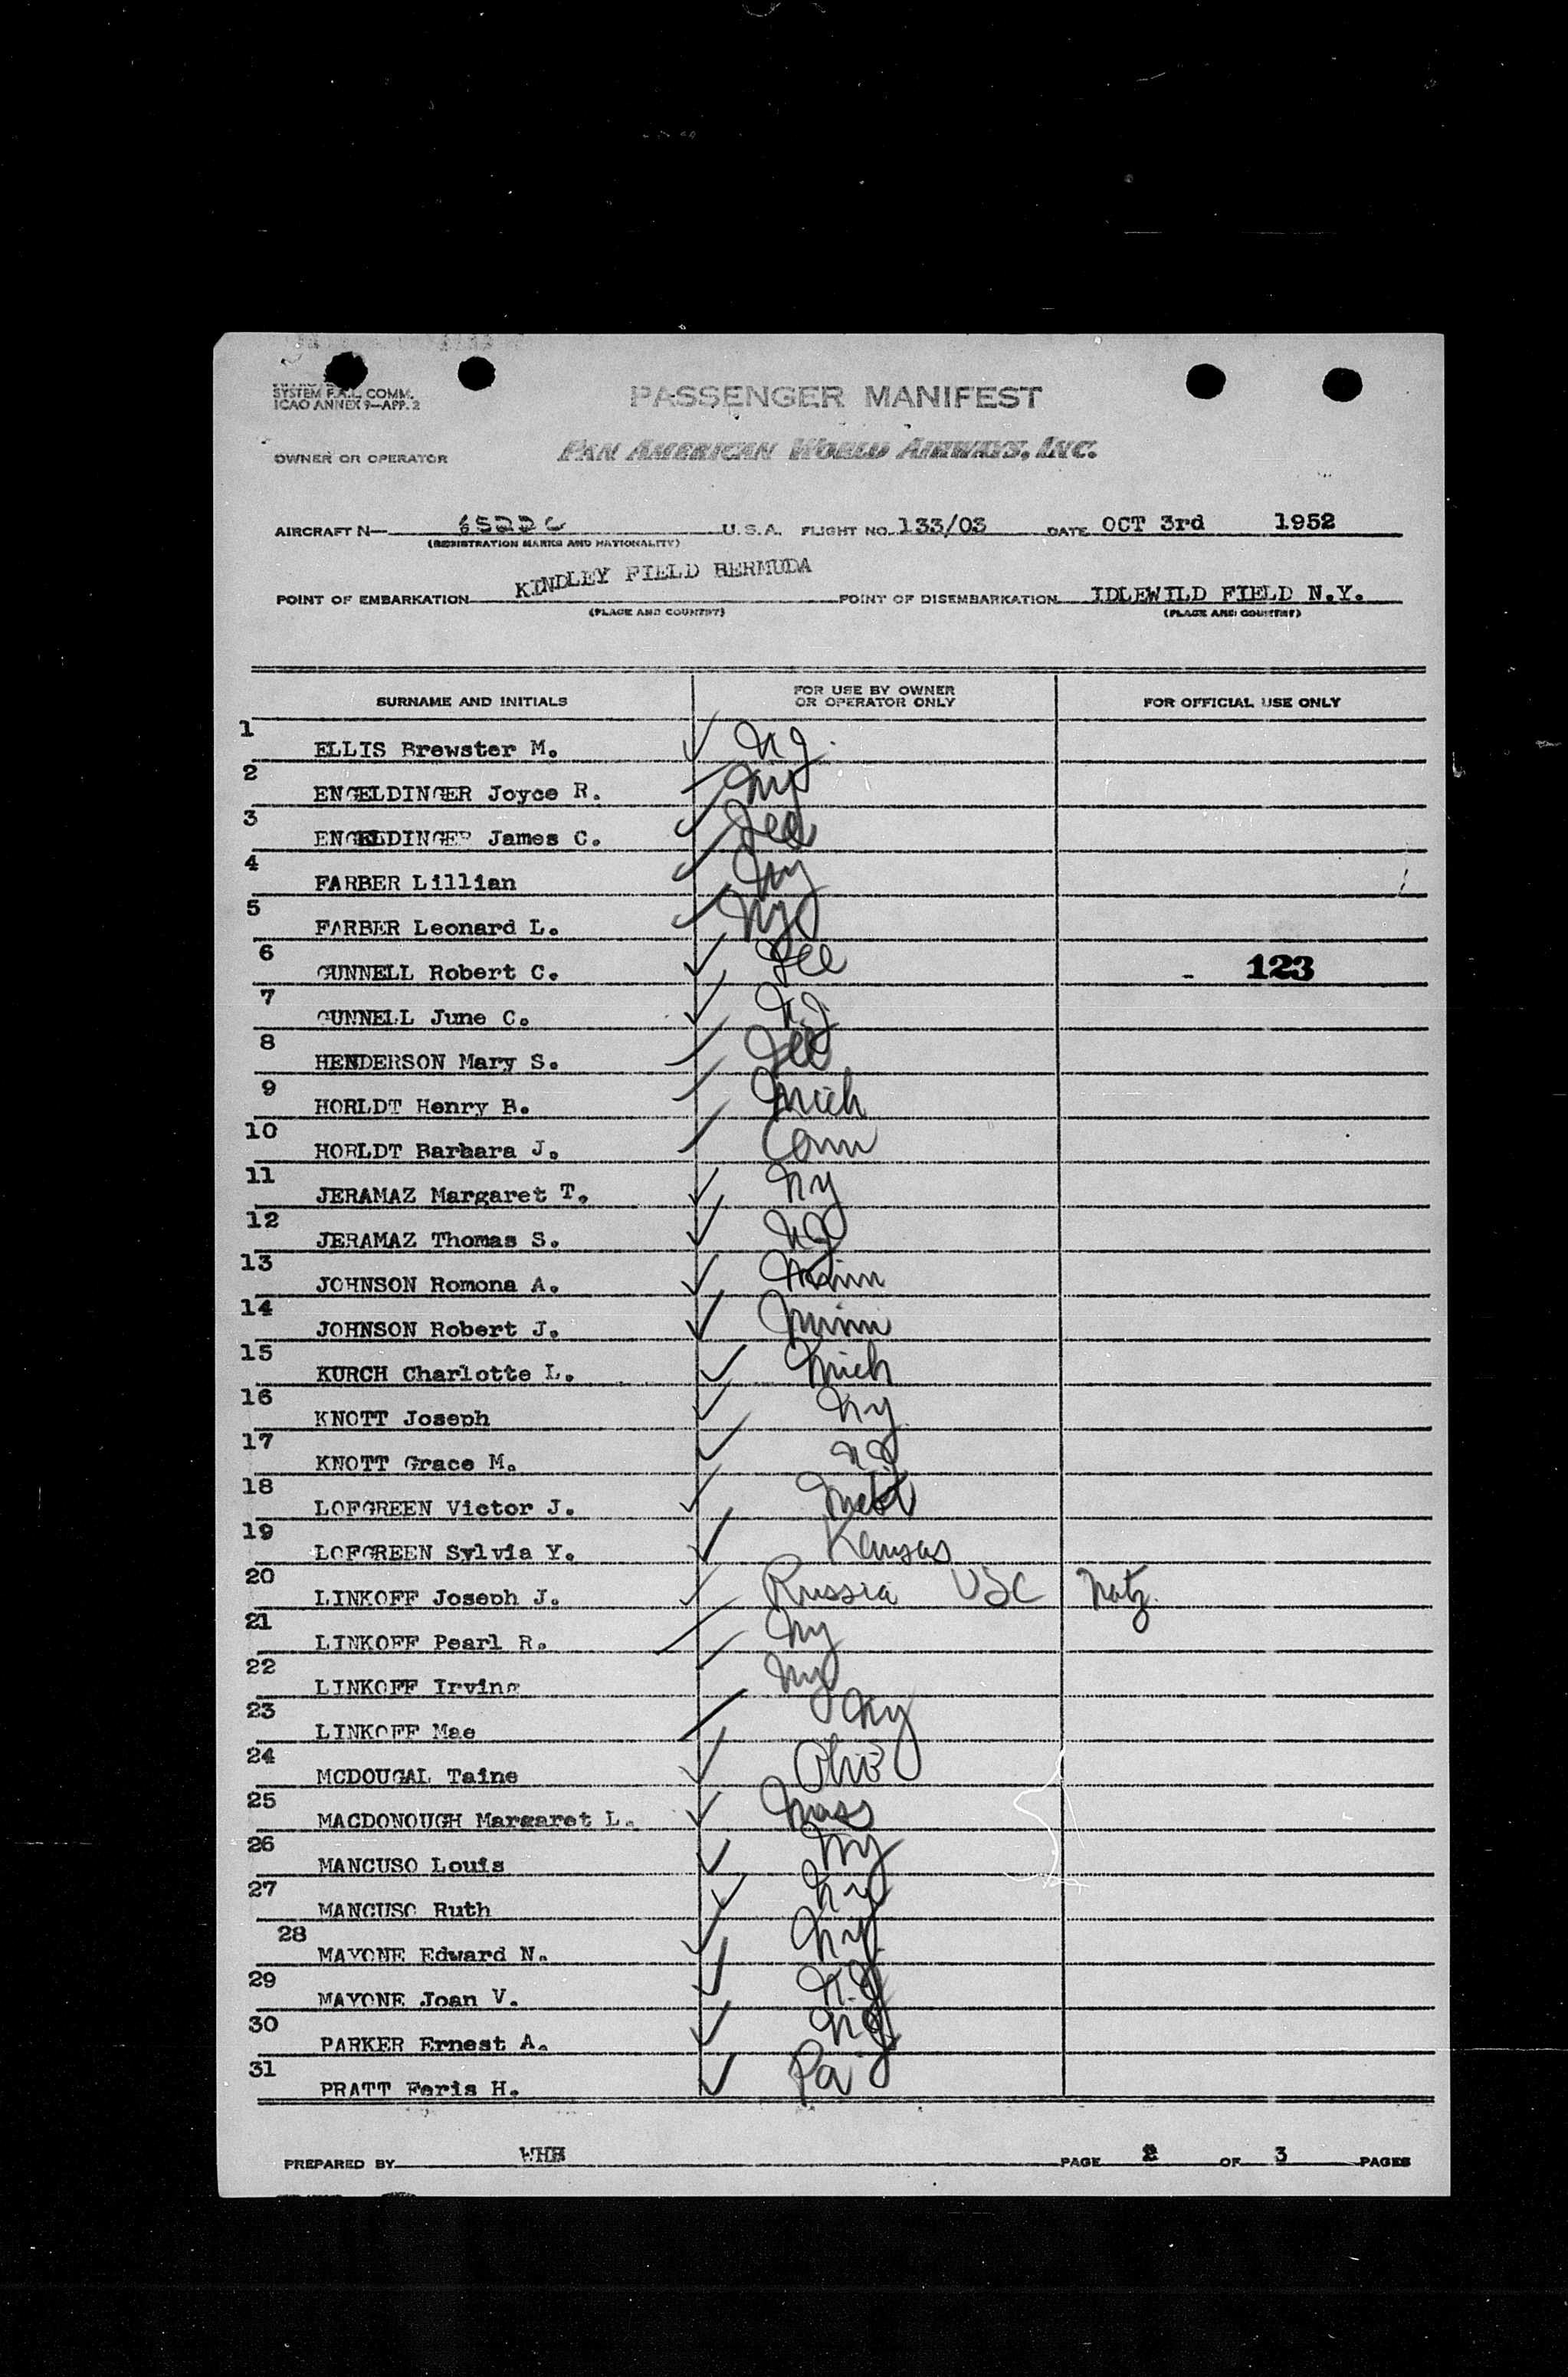 SYSTEM F.A.L. COMM.
ICAO ANNEX 9—APP. 2
PASSENGER MANIFEST
OWNER OR OPERATOR PAN AMERICAN WORLD AIRWAYS, INC.
AIRCRAFT N— 65226 U.S.A. FLIGHT NO. 133/03 DATE OCT 3rd 1952
(REGISTRATION MARKS AND NATIONALITY)
POINT OF EMBARKATION KINDLEY FIELD BERMUDA POINT OF DISEMBARKATION IDLEWILD FIELD N.Y.
(PLACE AND COUNTRY) (PLACE AND COUNTRY)
SURNAME AND INITIALS FOR USE BY OWNER OR OPERATOR ONLY FOR OFFICIAL USE ONLY
1 ELLIS Brewster M. ✓ NJ.
2 ENGELDINGER Joyce R. ✓ NY
3 ENGELDINGER James C. ✓
4 FARBER Lillian ✓ NY
5 FARBER Leonard L. ✓ NY
6 GUNNELL Robert C. ✓ Ill - 123
7 GUNNELL June C. ✓ N.J
8 HENDERSON Mary S. ✓ Ill
9 HORLDT Henry B. ✓ Mich
10 HORLDT Barbara J. ✓ Conn
11 JERAMAZ Margaret T. ✓ NY
12 JERAMAZ Thomas S. ✓ NJ
13 JOHNSON Romona A. ✓ Minn
14 JOHNSON Robert J. ✓ Minn
15 KURCH Charlotte L. ✓ Mich
16 KNOTT Joseph ✓ NY.
17 KNOTT Grace M. ✓ NJ
18 LOFGREEN Victor J. ✓
19 LOFGREEN Sylvia Y. ✓ Kansas
20 LINKOFF Joseph J. ✓ Russia USC Natz.
21 LINKOFF Pearl R. ✓ NY
22 LINKOFF Irving ✓ NY
23 LINKOFF Mae ✓ NY
24 MCDOUGAL Taine ✓ Ohio
25 MACDONOUGH Margaret L. ✓ Mass
26 MANCUSO Louis ✓ NY
27 MANCUSO Ruth ✓ NY
28 MAYONE Edward N. ✓ NY.
29 MAYONE Joan V. ✓ N.J
30 PARKER Ernest A. ✓ NJ
31 PRATT Feris H. ✓ Pa
PREPARED BY WHB PAGE 2 OF 3 PAGES